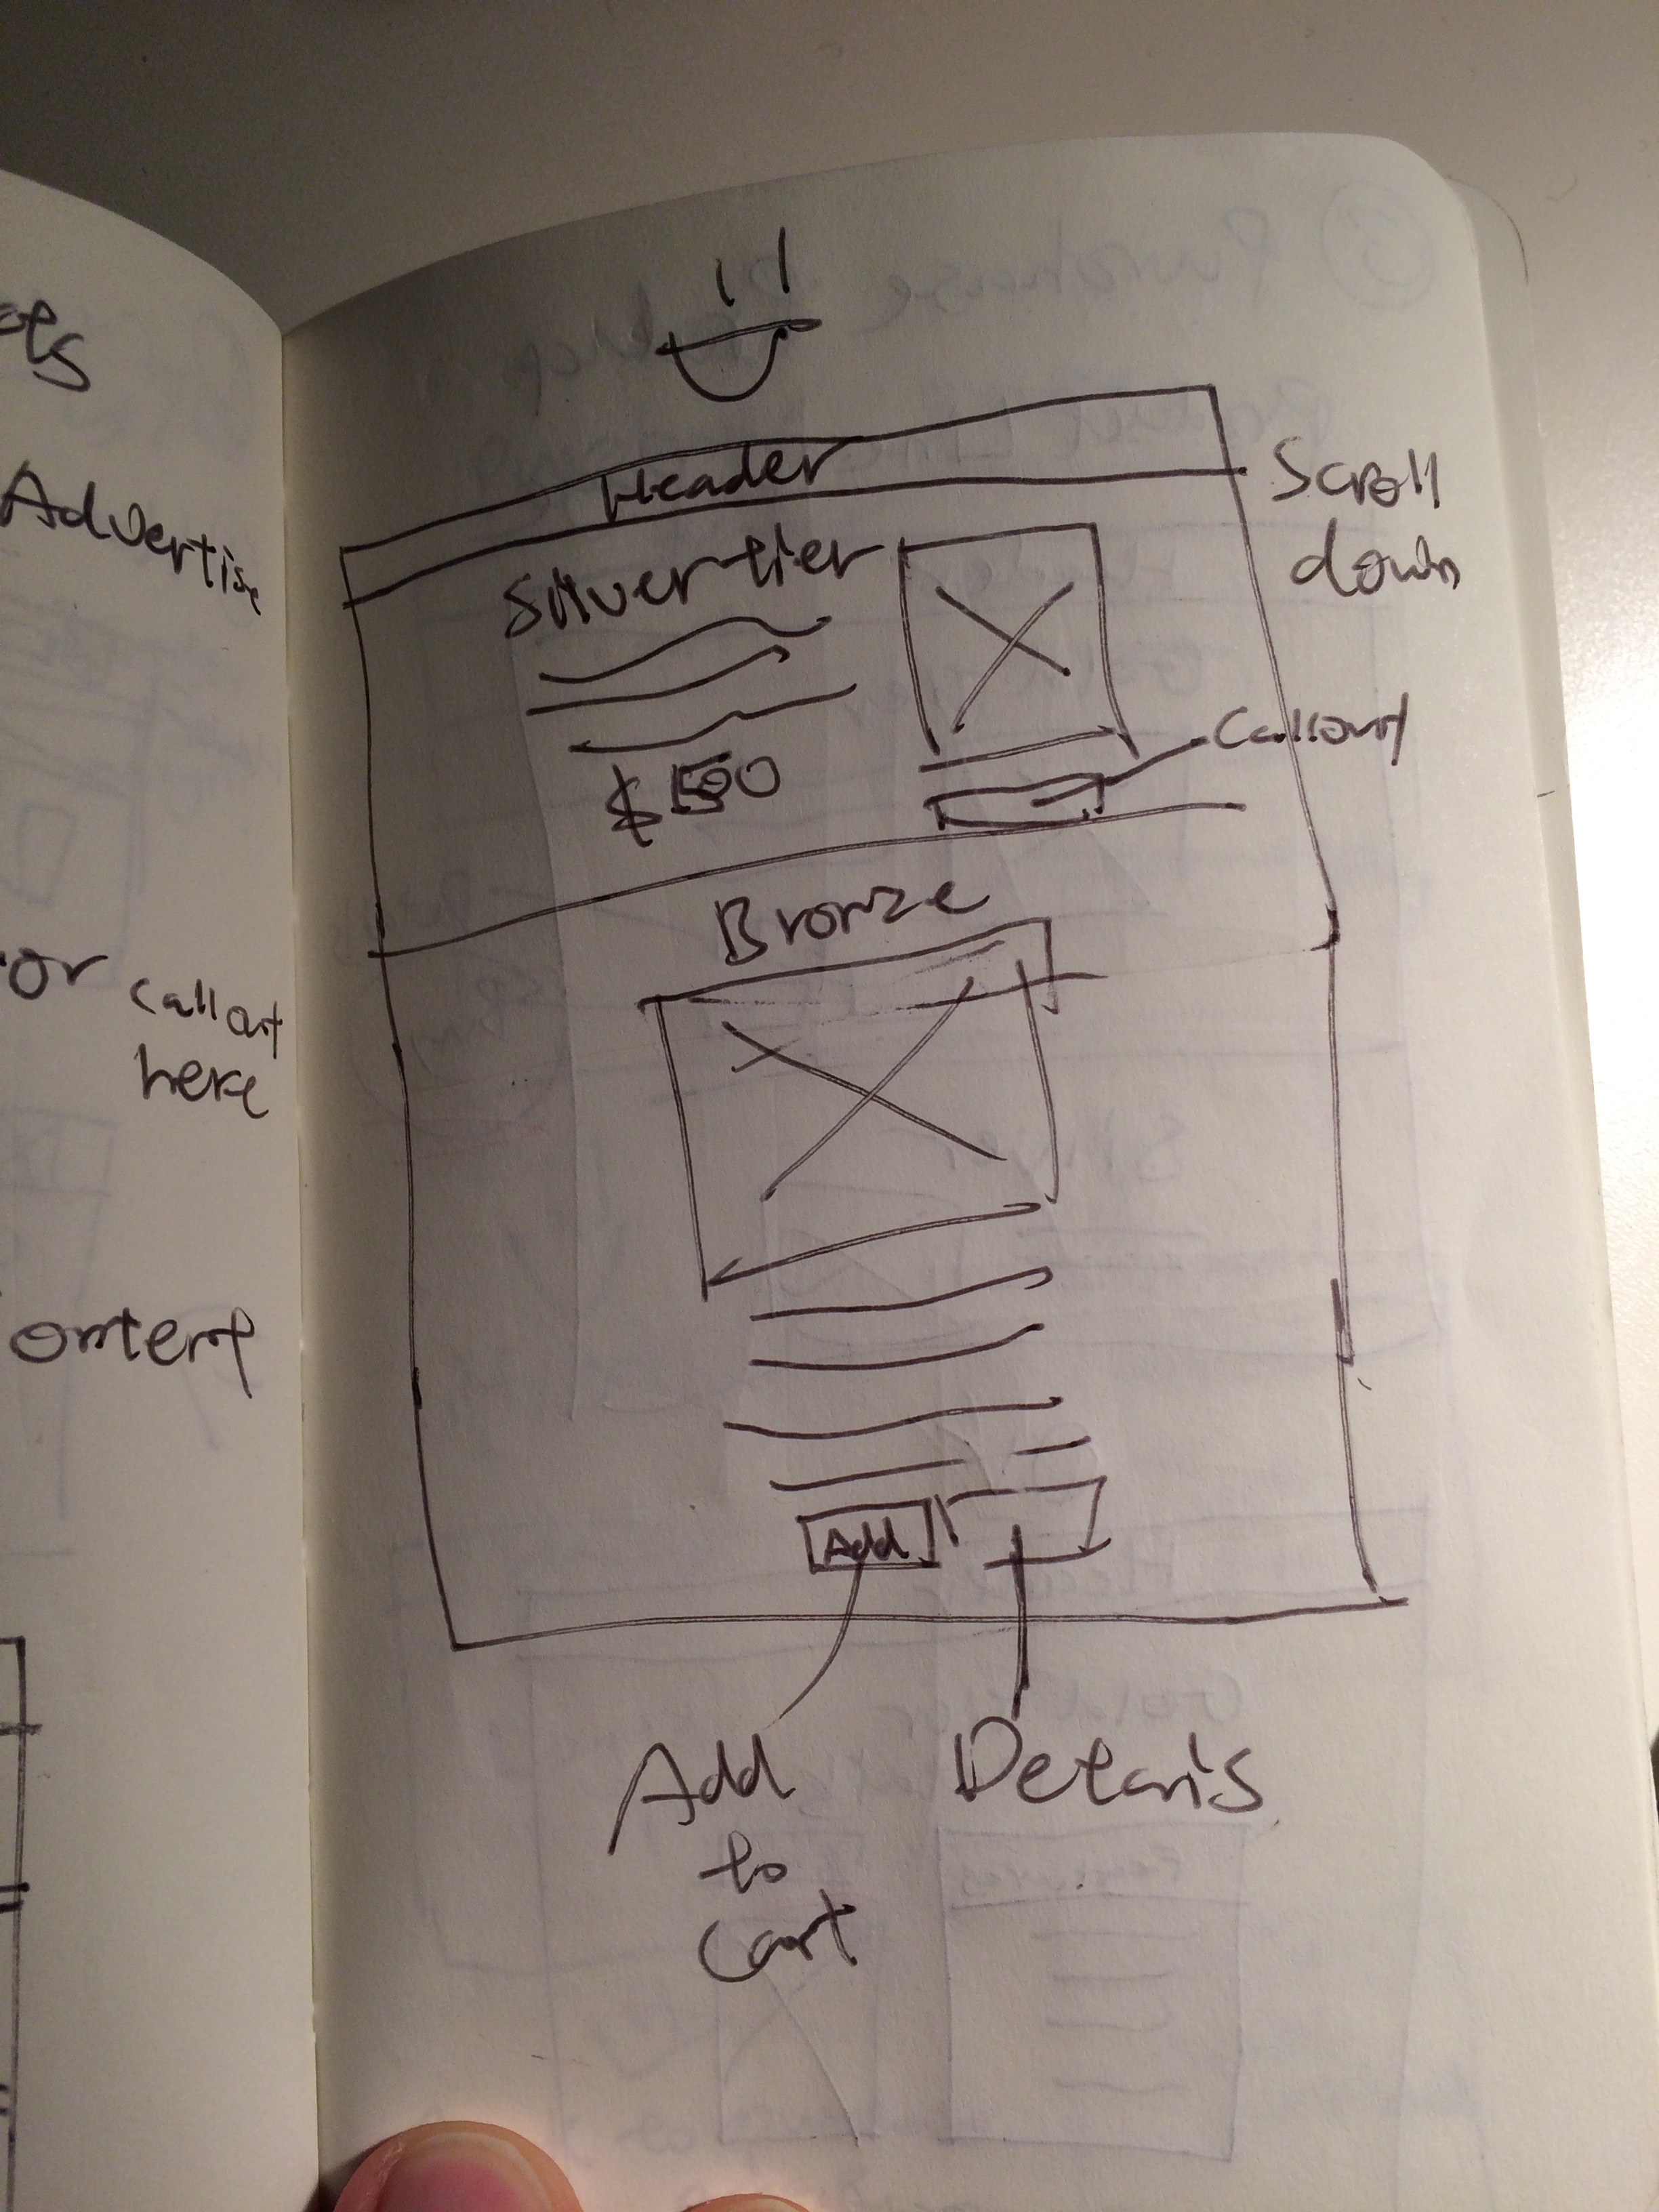 Advertise
or callout
here
Header
Scroll
down
Silver tier
Callout
Bronze
Add
Add
to
cart
Details